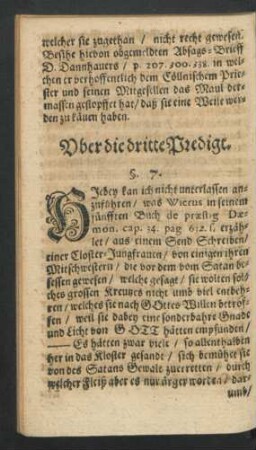 welcher sie zugethan / nicht recht gewesen.
Besihe hievon obgemeldten Absags-Brieff
D. Dannhauers / p. 207. 500. 538. in wel-
chen er verhoffentlich dem Cöllnischem Prie-
ster und seinen Mitgesellen das Maul der-
massen gestopffet hat / daß sie eine Weile wer-
den zu käuen haben.
Vber die dritte Predigt.
§. 7.
HJebey kan ich nicht unterlassen an-
zuführen / was Wierus in seinem
fünfften Buch de præstig Dæ-
mon. cap. 34. pag 612. f. erzäh-
let / aus einem Send Schreiben /
einer Closter-Jungfrauen / von einigen ihren
Mitschwestern / die vor dem vom Satan be-
sessen gewesen / welche gesage / sie wolten sol-
ches grossen Kreuzes nicht umb viel entbeh-
ren / welches sie nach GOttes Willen betrof-
fen / weil sie dabey eine sonderbahre Gnade
und Licht von GOTT hätten empfunden /
—— Es hätten zwar viele / so allenthalben
her in das Kloster gesandt / sich bemühet sie
von des Satans Gewalt zu erretten / durch
welcher Fleiß aber es nur ärger worden / dar-
umb /